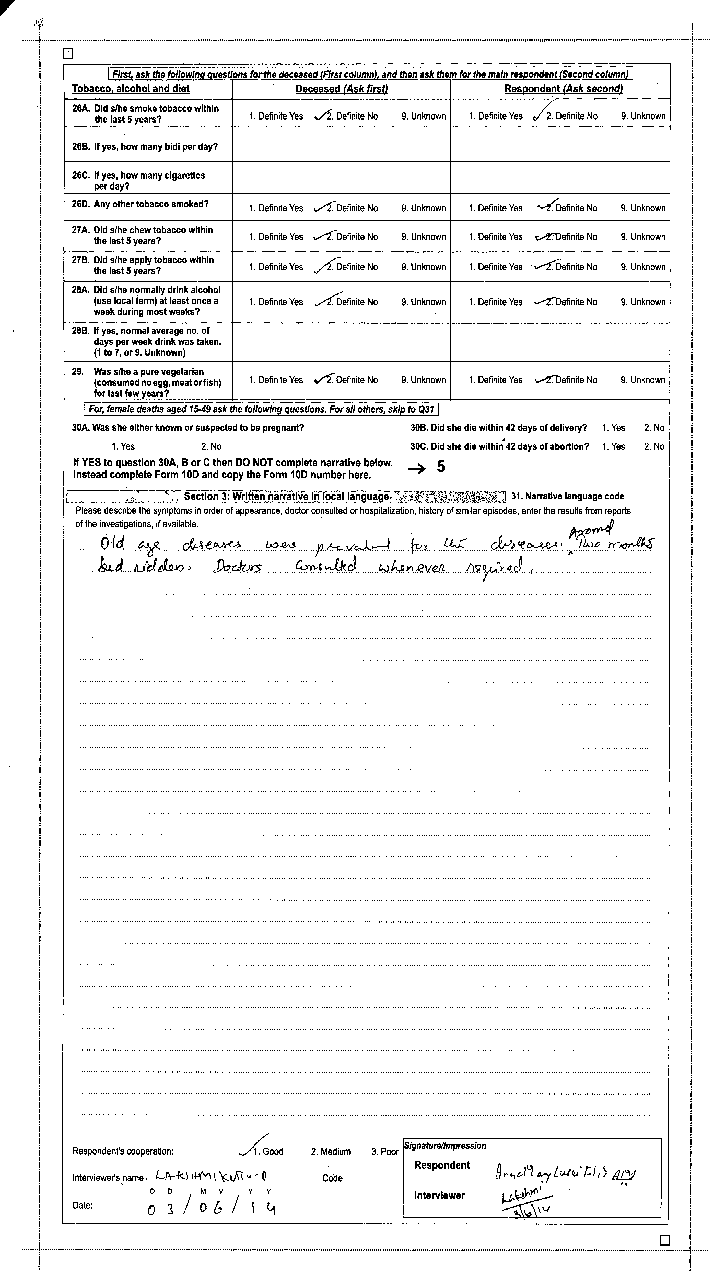 First, ask the following questions for the deceased (First column), and then ask them for the main respondent (Second column)
Tobacco, alcohol and diet Deceased (Ask first) Respondent (Ask second)
26A. Did s/he smoke tobacco within the last 5 years? 1. Definite Yes 2. Definite No 9. Unknown 1. Definite Yes 2. Definite No 9. Unknown
26B. If yes, how many bidi per day?
26C. If yes, how many cigarettes per day?
26D. Any other tobacco smoked? 1. Definite Yes 2. Definite No 9. Unknown 1. Definite Yes 2. Definite No 9. Unknown
27A. Did s/he chew tobacco within the last 5 years? 1. Definite Yes 2. Definite No 9. Unknown 1. Definite Yes 2. Definite No 9. Unknown
27B. Did s/he apply tobacco within the last 5 years? 1. Definite Yes 2. Definite No 9. Unknown 1. Definite Yes 2. Definite No 9. Unknown
28A. Did s/he normally drink alcohol (use local term) at least once a week during most weeks? 1. Definite Yes 2. Definite No 9. Unknown 1. Definite Yes 2. Definite No 9. Unknown
28B. If yes, normal average no. of days per week drink was taken. (1 to 7, or 9. Unknown)
29. Was s/he a pure vegetarian (consumed no egg, meat or fish) for last few years? 1. Definite Yes 2. Definite No 9. Unknown 1. Definite Yes 2. Definite No 9. Unknown
For, female deaths aged 15-49 ask the following questions. For all others, skip to Q31
30A. Was she either known or suspected to be pregnant? 30B. Did she die within 42 days of delivery? 1. Yes 2. No
1. Yes 2. No 30C. Did she die within 42 days of abortion? 1. Yes 2. No
If YES to question 30A, B or C then DO NOT complete narrative below.
Instead complete Form 10D and copy the Form 10D number here. → 5
Section 3: Written narrative in local language. 31. Narrative language code
Please describe the symptoms in order of appearance, doctor consulted or hospitalization, history of similar episodes, enter the results from reports
of the investigations, if available.
Old age diseases were prevalent for the Around Two months
bed ridden. Doctors Consulted whenever required.
Respondent's cooperation: 1. Good 2. Medium 3. Poor
Signature/Impression
Respondent
Interviewer's name: Code
D D M Y Y Y
Date: 03/06/14
Interviewer Lakshmi
3/6/14